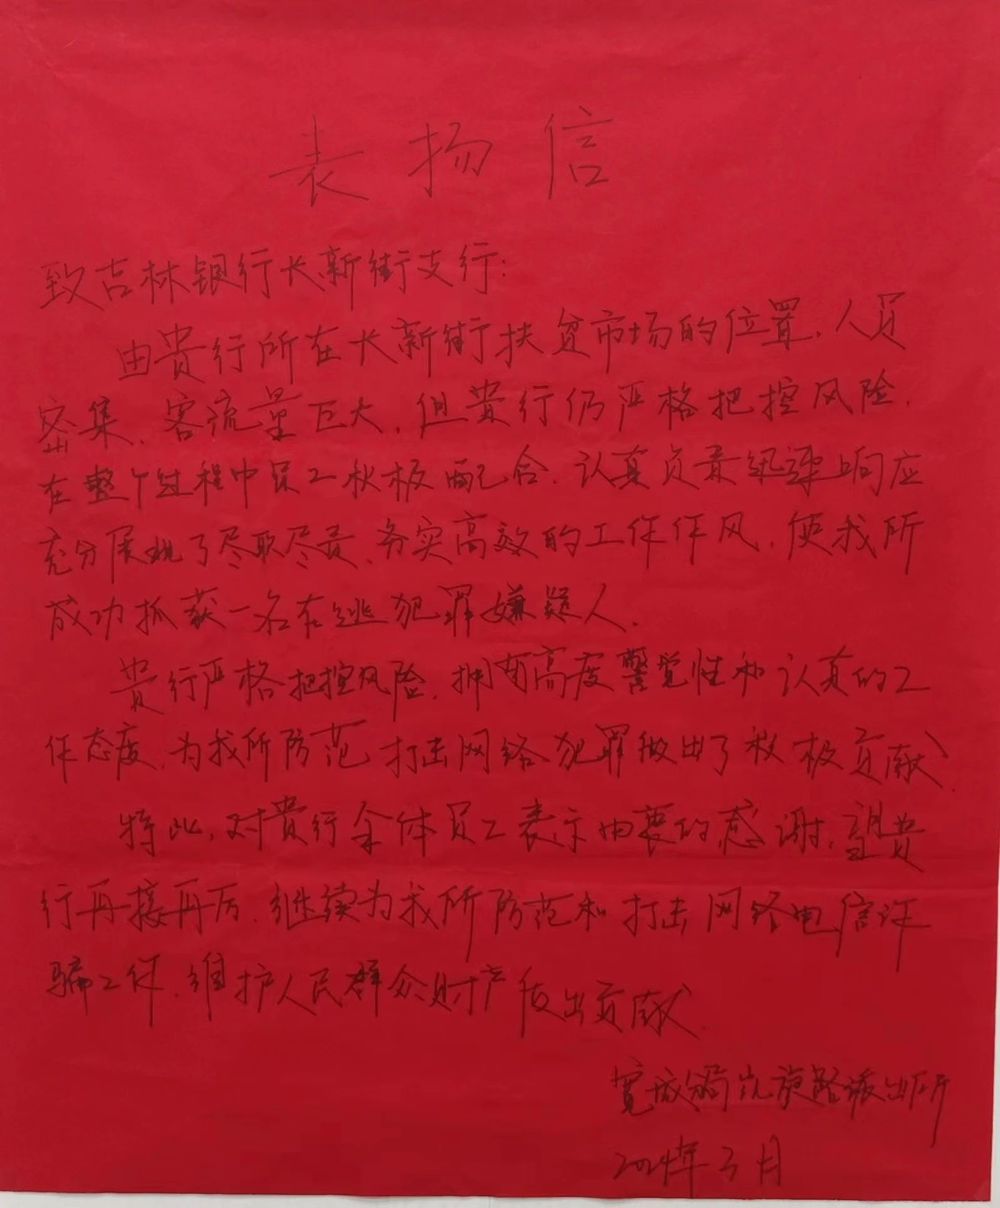 表扬信
致吉林银行长新街支行:
由贵行所在长新街扶贫市场的位置,人员
密集、客流量巨大,但贵行仍严格把控风险,
在整个过程中员工积极配合、认真负责迅速响应
充分展现了尽职尽责、务实高效的工作作风,使我所
成功抓获一名在逃犯罪嫌疑人.
贵行严格把控风险,拥有高度警觉性和认真的工
作态度,为我所防范打击网络犯罪做出了积极贡献、
特此,对贵行全体员工表示由衷的感谢,望贵
行再接再厉,继续为我所防范和打击网络电信诈
骗工作,维护人民群众财产做出贡献.
宽城分局凯旋路派出所
2024年3月